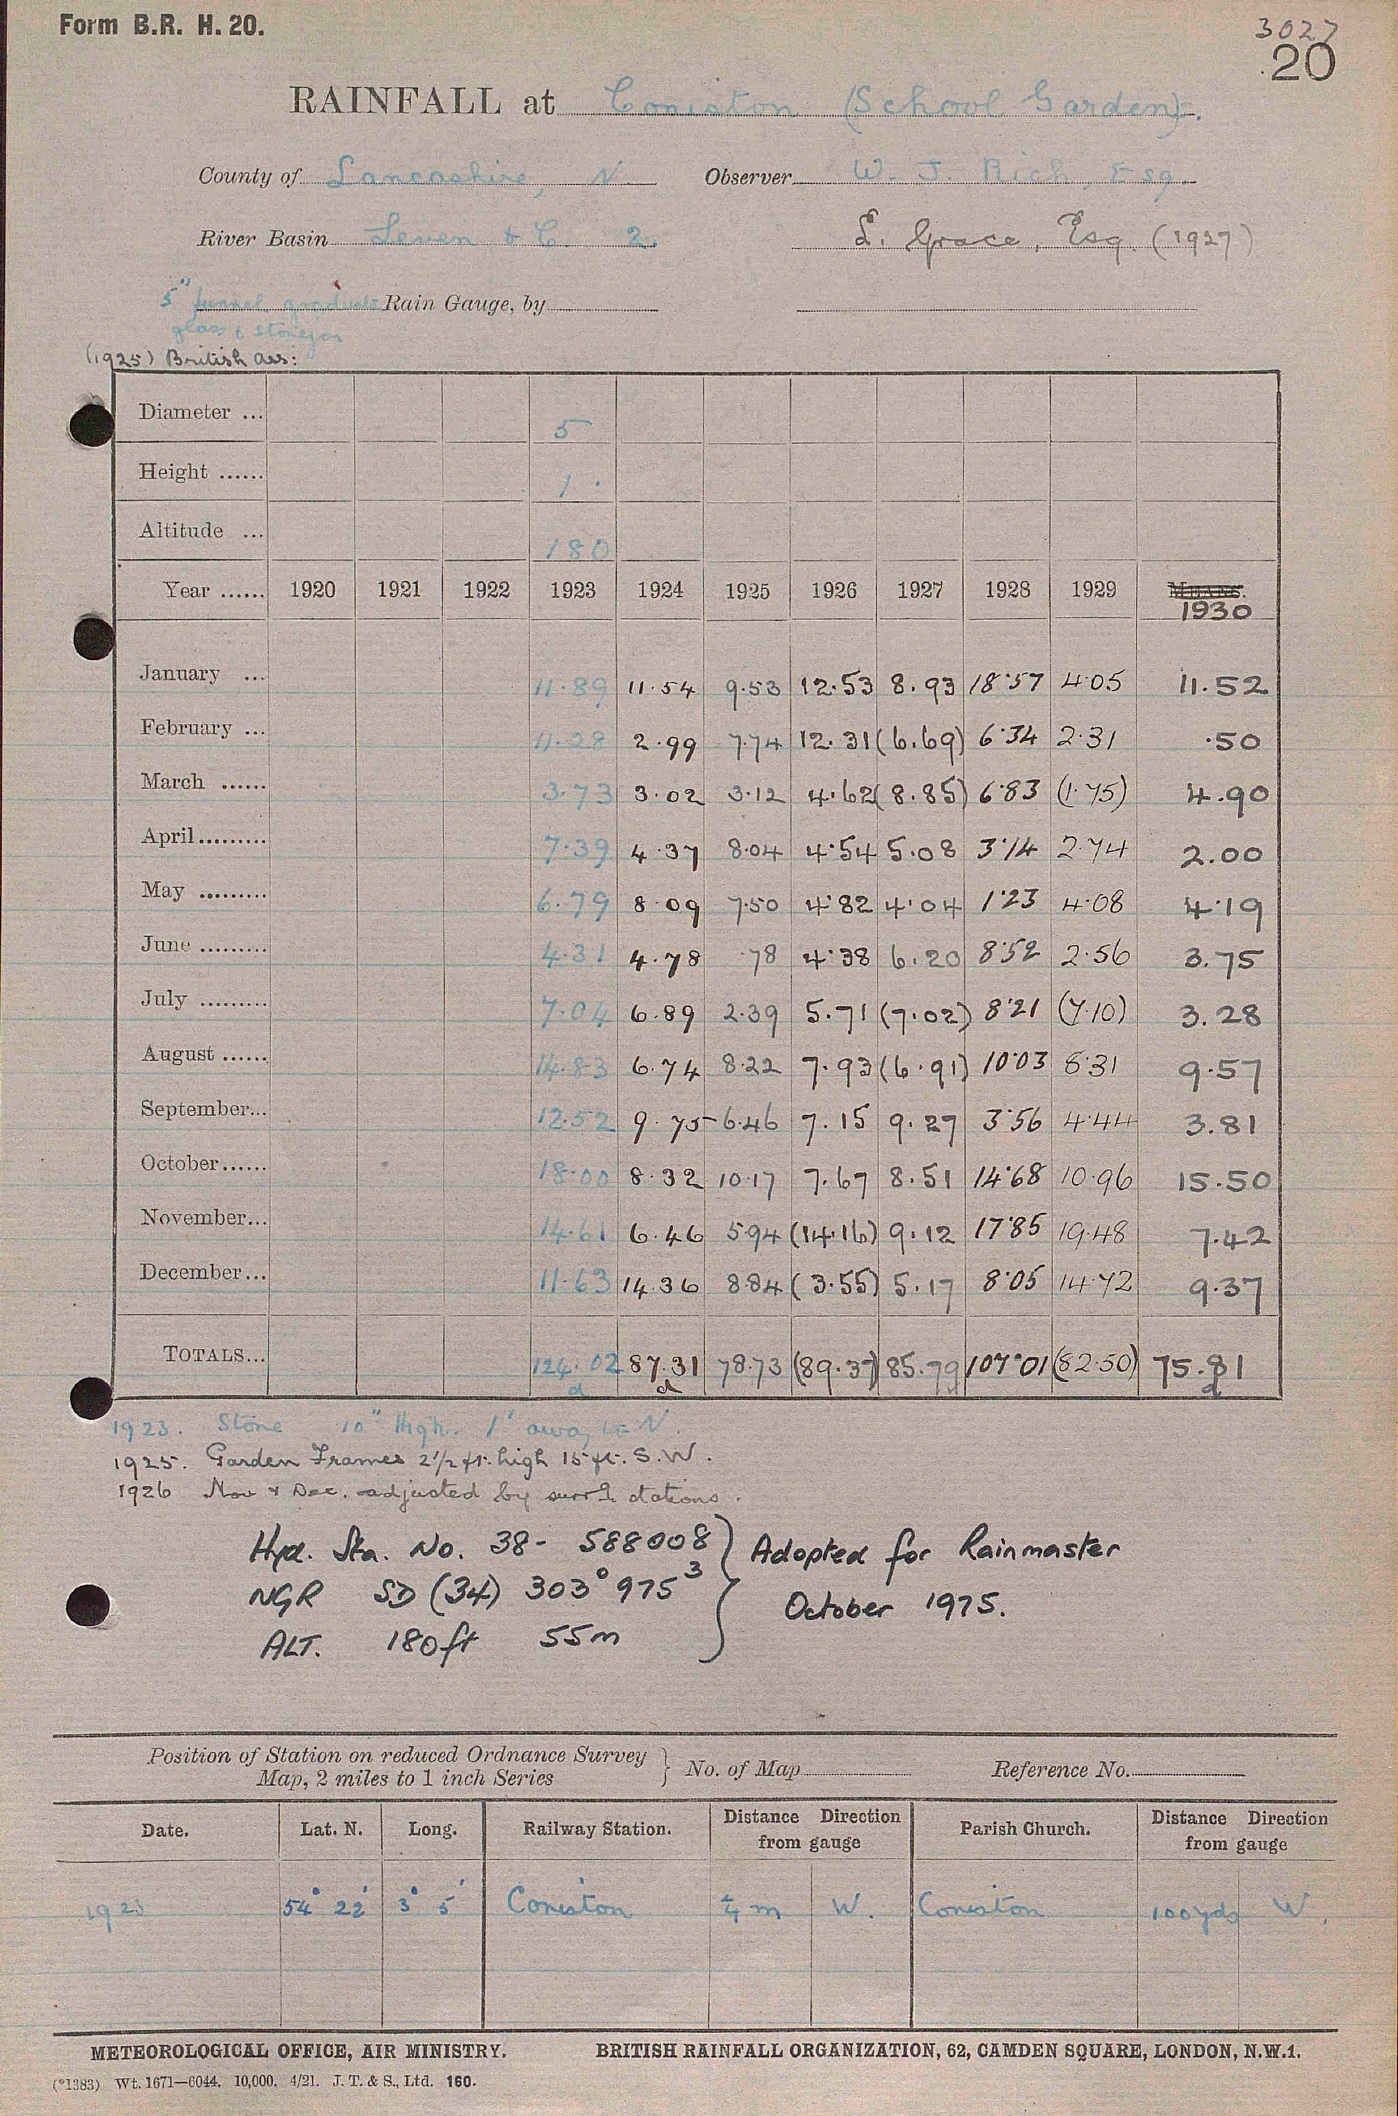 Form B.R. H. 20.
3027
20
RAINFALL at Coniston (School Garden).
County of Lancashire, N. Observer W. J. Rich, Esq.
River Basin Leven & C. 2. L. Grace, Esq. (1927)
5" funnel, graduate Rain Gauge, by
glass & stonejar
(1925) British Ass:
Diameter ... 5
Height ...... 1 .
Altitude ... 180
Year ...... 1920 1921 1922 1923 1924 1925 1926 1927 1928 1929 MEANS. 1930
January ... 11.89 11.54 9.53 12.53 8.93 18.57 4.05 11.52
February ... 11.28 2.99 7.74 12.31 (6.69) 6.34 2.31 .50
March ...... 3.73 3.02 3.12 4.62 (8.85) 6.83 (1.75) 4.90
April......... 7.39 4.37 8.04 4.54 5.08 3.14 2.74 2.00
May ......... 6.79 8.09 7.50 4.82 4.04 1.23 4.08 4.19
June ......... 4.31 4.78 .78 4.38 6.20 8.52 2.56 3.75
July ......... 7.04 6.89 2.39 5.71 (7.02) 8.21 (7.10) 3.28
August ...... 14.83 6.74 8.22 7.93 (6.91) 10.03 8.31 9.57
September... 12.52 9.75 6.46 7.15 9.27 3.56 4.44 3.81
October...... 18.00 8.32 10.17 7.67 8.51 14.68 10.96 15.50
November... 14.61 6.46 5.94 (14.16) 9.12 17.85 19.48 7.42
December... 11.63 14.36 8.84 (3.55) 5.17 8.05 14.72 9.37
TOTALS... 124.02 87.31 78.73 (89.37) 85.79 107.01 (82.50) 75.81
d d d
1923. Stone 10" High. 1' away to N.
1925. Garden Frames 2½ ft. high 15 ft. S.W.
1926 Nov & Dec. adjusted by surrg stations.
Hyd. Sta. No. 38- 588008 } Adopted for Rainmaster
NGR SD (34) 303⁰ 975³ October 1975.
ALT. 180ft 55m
Position of Station on reduced Ordnance Survey
Map, 2 miles to 1 inch Series } No. of Map Reference No.
Date. Lat. N. Long. Railway Station. Distance Direction from gauge Parish Church. Distance Direction from gauge
1923 54° 22' 3° 5' Coniston ¼ m W. Coniston 100yds W.
METEOROLOGICAL OFFICE, AIR MINISTRY. BRITISH RAINFALL ORGANIZATION, 62, CAMDEN SQUARE, LONDON, N.W.1.
(*1383) Wt. 1671—6044. 10,000. 4/21. J. T. & S., Ltd. 160.